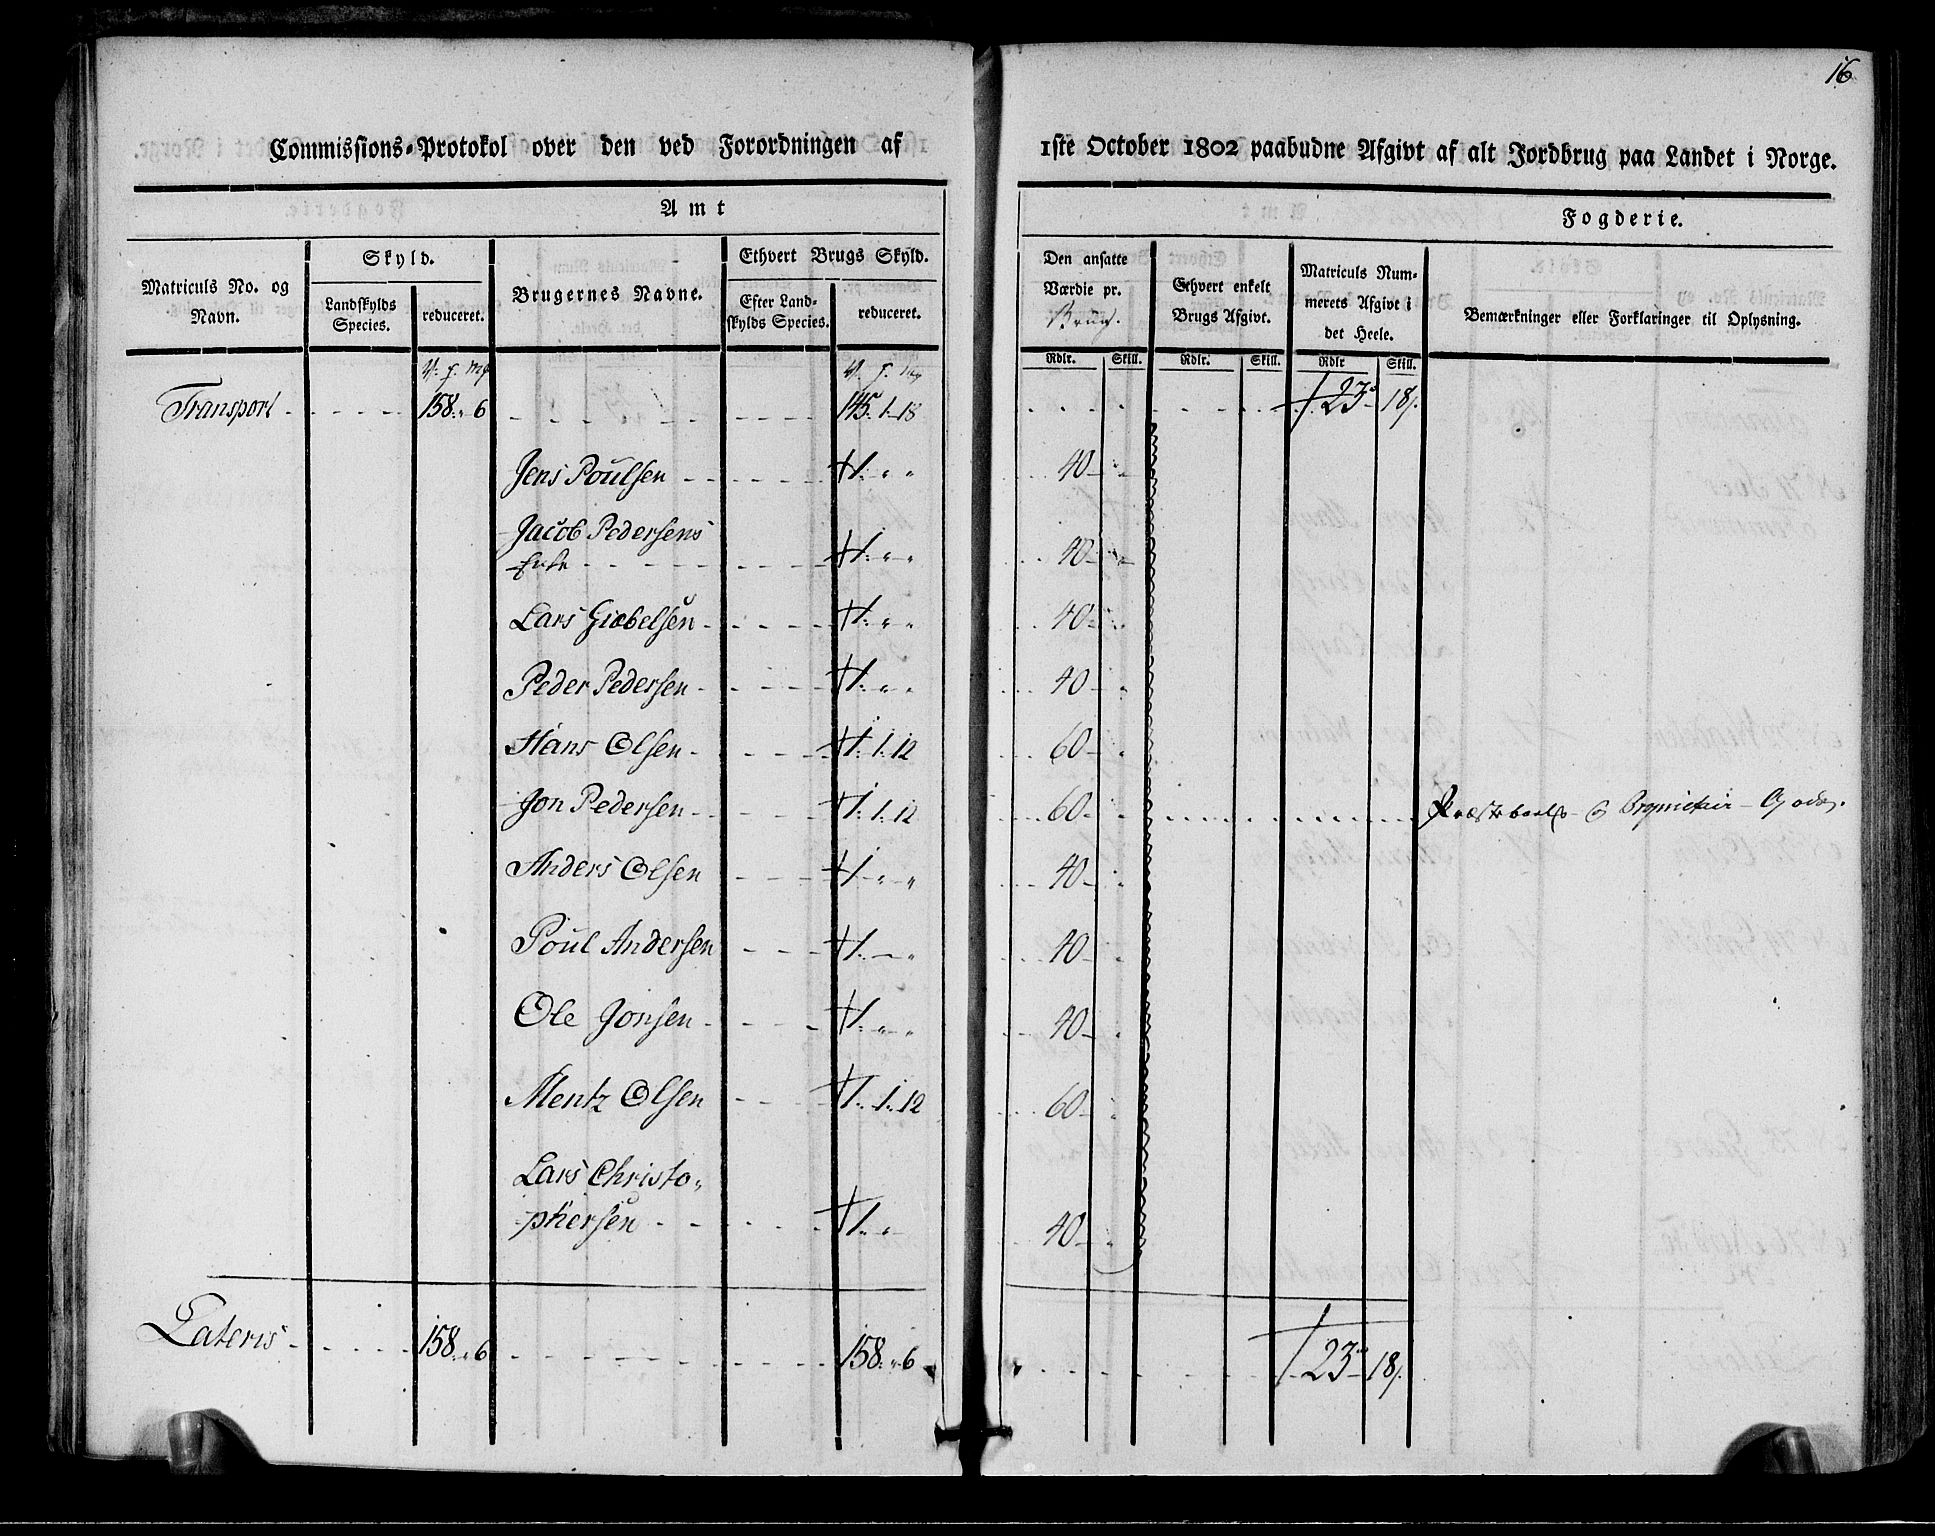 16
Commissions-Protokol over den ved Forordningen af 1ste October 1802 paabudne Afgivt af alt Jordbrug paa Landet i Norge.
Amt Fogderie.
Matriculs No. og Navn.
Skyld.
Landskylds Species.
reduceret.
Brugernes Navne.
Ethvert Brugs Skyld.
Efter Landskylds Species.
reduceret.
Den ansatte Værdie pr. Brug.
Rdlr. Skill.
Ethvert enkelt Brugs Afgivt.
Rdlr. Skill.
Matriculs Nummerets Afgivt i det Heele.
Rdlr Skill.
Bemærkninger eller Forklaringer til Oplysning.
Transport 158 " 6 145. 1. 18 123 18
Jens Poulsen 1 " " 40 "
Jacob Pedersens
Enke 1 " " 40 "
Lars Giæbelsen 1 " " 40 "
Peder Pedersen 1 " " 40 "
Hans Olsen 1. 1. 12 60 "
Jon Pedersen 1. 1. 12 60 "
Anders Olsen 1 " " 40 "
Poul Andersen 1 " 40 "
Ole Jonsen 1 " " 40 "
Mentz Olsen 1. 1. 12 60 "
Lars Christo-
phersen 1 " 40 "
Lateris 158 " 6 158 " 6 123 18